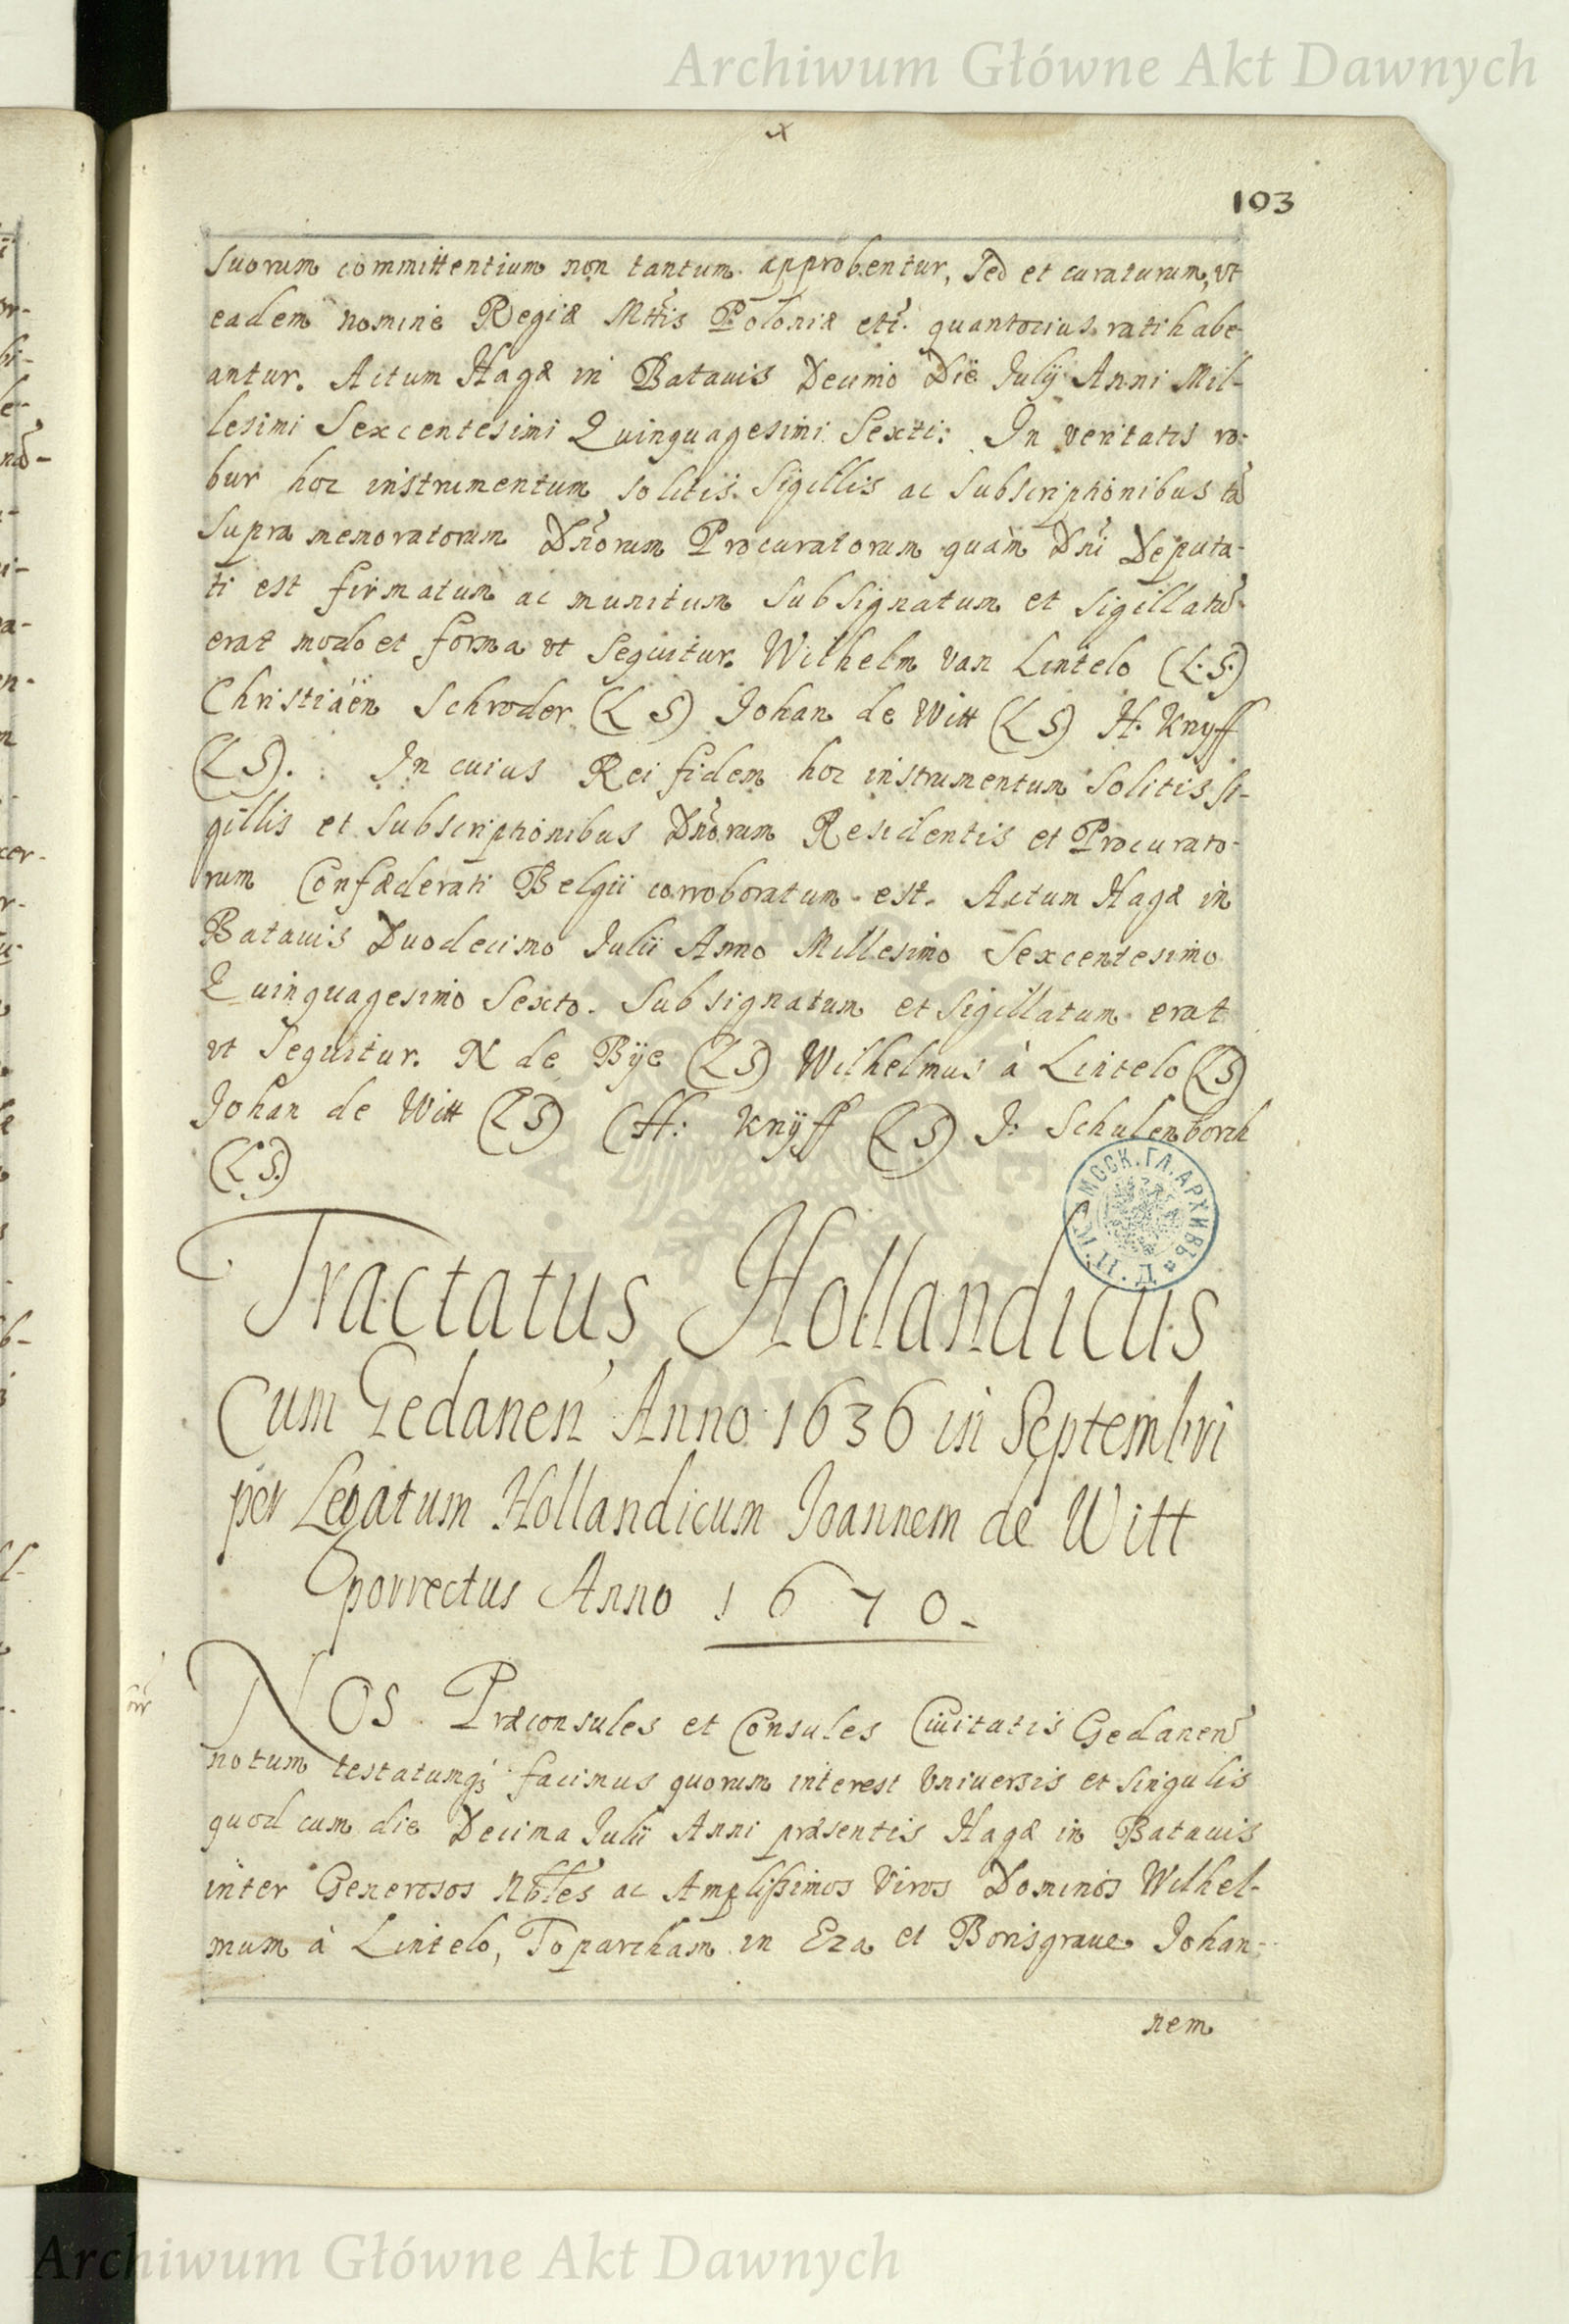 Archiwum Główne Akt Dawnych
103
suorum committentium non tantum approbentur, sed et curaturum, vt
eadem nomine Regiæ Mttis Poloniæ etc. quantocius ratihabe-
antur. Actum Hagæ in Batauis Decimo Die Julij Anni Mil-
lesimi Sexcentesimi Quinquagesimi Sexti: In veritatis ro-
bur hoc instrumentum solitis Sigillis ac Subscriptionibus tã
supra memoratorum Dnorum Procuratorum quam Dni Deputa-
ti est firmatum ac munitum subsignatum et sigillatũ
erat modo et forma vt sequitur. Wilhelm van Lintelo (L.S.)
Christiaën Schroder (LS) Johan de Witt (LS) H. Knyff
(LS). In cuius Rei fidem hoc instrumentum solitis si-
gillis et subscriptionibus Dnorum Residentis et Procurato-
rum Confæderati Belgii corroboratum est. Actum Hagæ in
Batauis Duodecimo Julii Anno Millesimo Sexcentesimo
Quinquagesimo Sexto. Subsignatum et sigillatum erat
vt sequitur. N de Bÿe (LS) Wilhelmus à Lintelo (LS)
Johan de Witt (LS) (H: Knÿff (LS) J: Schulenborch
(LS.)
МОСК. ГЛ. АРХИВЪ
Tractatus Hollandicus
Cum Gedanen Anno 1636 in Septembri
per Legatum Hollandicum Joannem de Witt
porrectus Anno 1670.
NOS Præconsules et Consules Ciuitatis Gedanen
notum testatumq; facimus quorum interest Vniuersis et singulis
quod cum die Decima Julii Anni præsentis Hagæ in Batauis
inter Generosos Nbles ac Amplissimos Viros Dominos Wilhel-
mum à Lintelo, Toparcham in Eza et Borisgraue Johan-
nem
Archiwum Główne Akt Dawnych